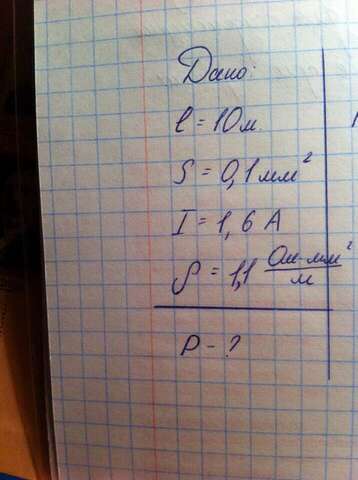 Дано:
l = 10м
S = 0,1 мм²
I = 1,6 А
ρ = 1,1 Ом·мм²/м
P - ?